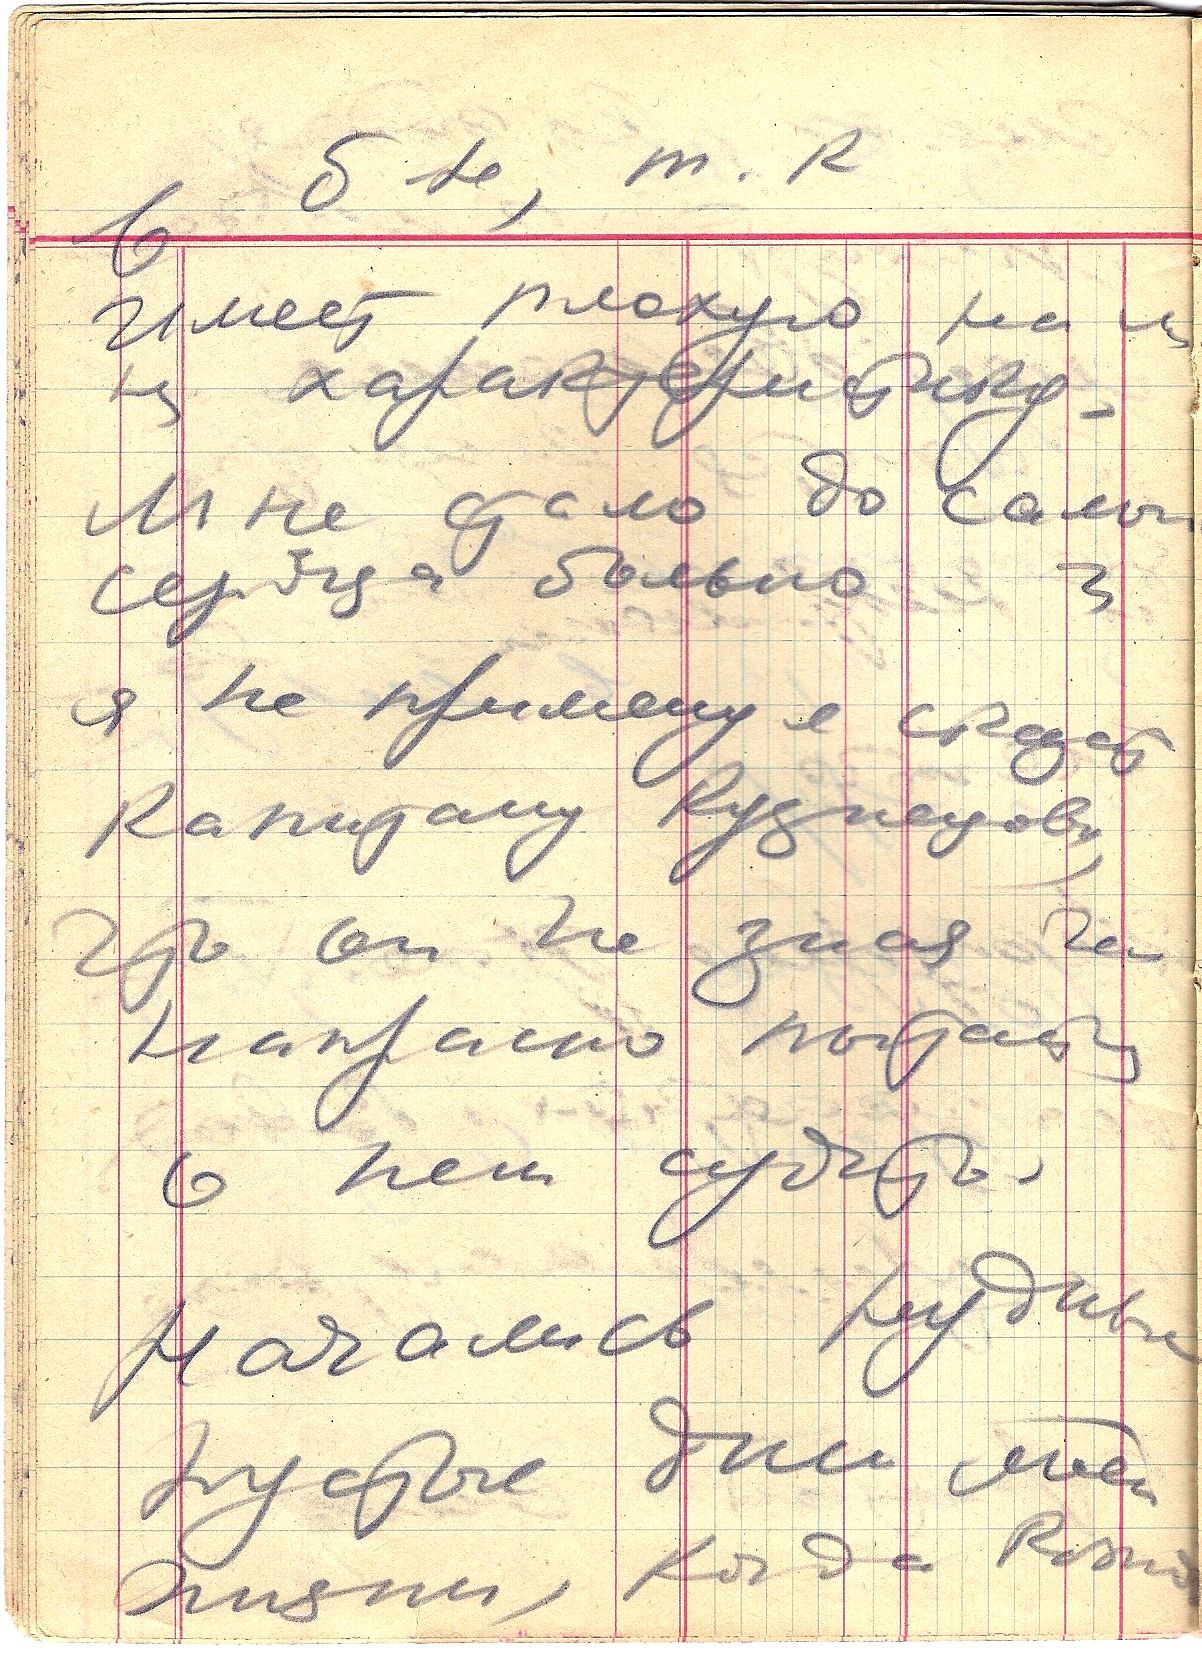 в б-не, т. к
имеет плохую на ц
ну характеристику.
Мне стало до самог
сердца больно и
я не применул сказат
капитану Кузнецову,
что он не зная чел
напрасно пытаетц
о нем судить.
Начались нудные
пустые дни моей
жизни, когда